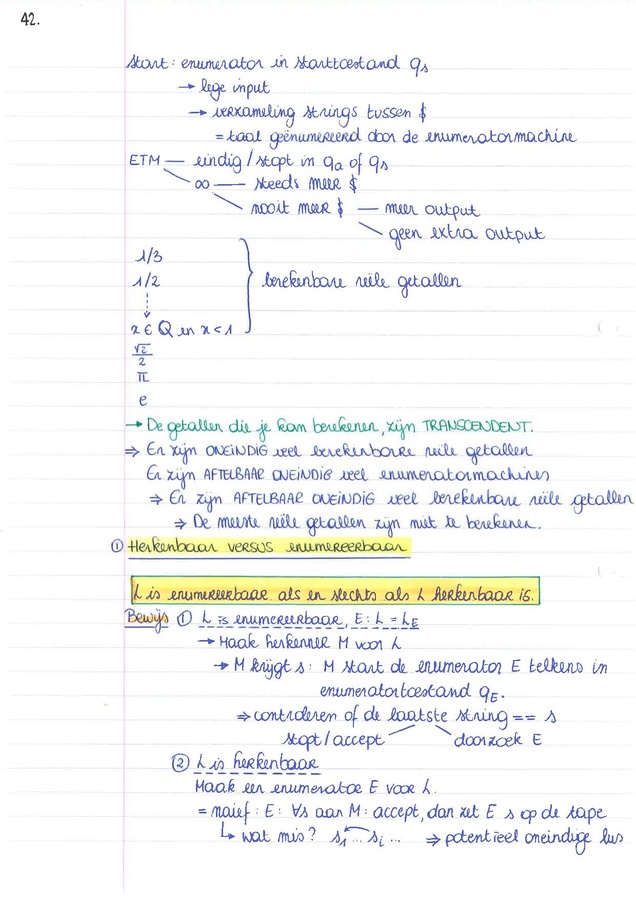 42.
Start: enumerator in starttoestand qs
→ lege input
→ verzameling strings tussen $
= taal geënumereerd door de enumeratormachine
ETM — eindig / stopt in qa of qs
∞ — steeds meer $
nooit meer $ — meer output
geen extra output
1/3
1/2
berekenbare reële getallen
x ∈ Q en x < 1
√2/2
π
e
→ De getallen die je kan berekenen, zijn TRANSCENDENT.
⇒ Er zijn ONEINDIG veel berekenbare reële getallen
Er zijn AFTELBAAR ONEINDIG veel enumeratormachines
⇒ Er zijn AFTELBAAR ONEINDIG veel berekenbare reële getallen
⇒ De meeste reële getallen zijn niet te berekenen.
① Herkenbaar versus enumereerbaar
L is enumereerbaar als en slechts als L herkenbaar is.
Bewijs ① L is enumereerbaar, E: L = LE
→ Maak herkenner M voor L
→ M krijgt s: M start de enumerator E telkens in
enumeratortoestand qE.
⇒ controleren of de laatste string == s
stopt/accept doorzoek E
② L is herkenbaar
Maak een enumerator E voor L.
= naïef: E: ∀s aan M: accept, dan zet E s op de tape
↳ wat mis? s1 ... si ... ⇒ potentieel oneindige lus